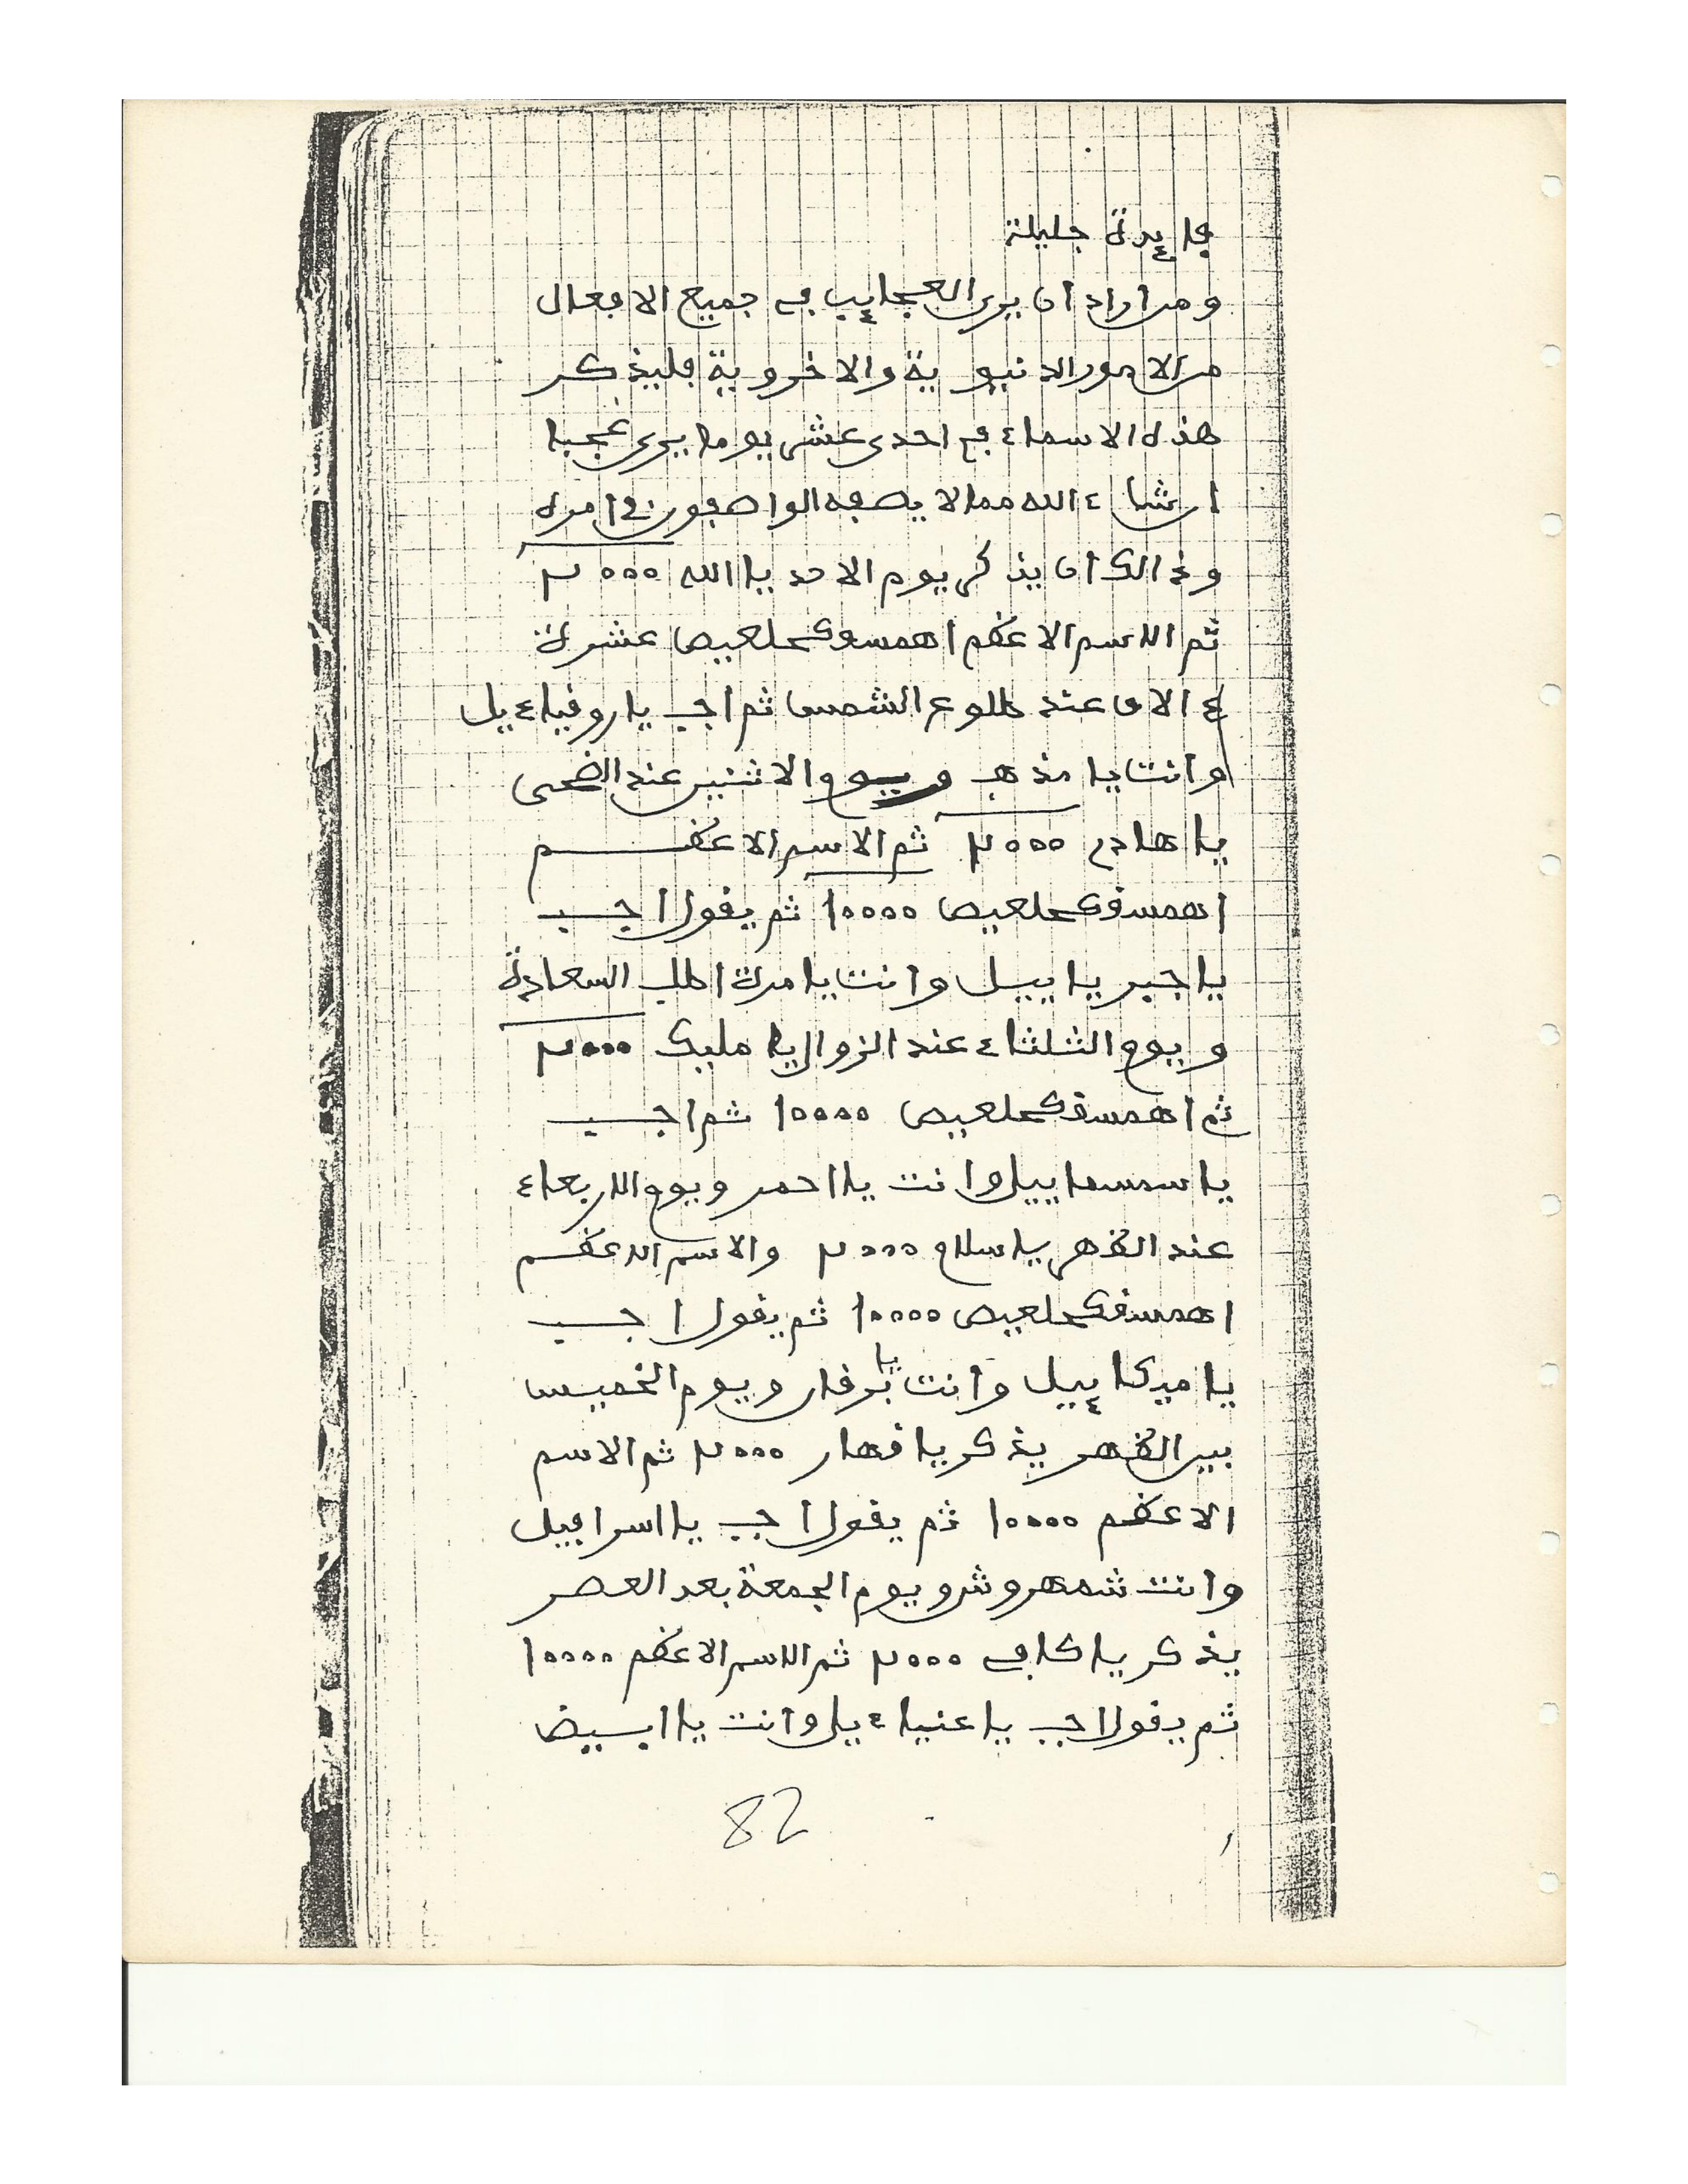 فايدة جليلة
ومن اراد ان يرى العجايب في جميع الافعال
من الامور الدنيوية والاخروية فليذكر
هذه الاسماء في احدى عشر يوما يرى عجبا
ان شاء الله مما لا يصفه الواصفون في امره
وذالك ان يذكر يوم الاحد يا الله ٣٠٠٠
ثم الاسم الاعظم اهمسقك حلعيص عشرة
ءالاف عند طلوع الشمس ثم اجب يا روفياءيل
وانت يا مذهب ويوم الاثنين عند الضحى
يا هادي ٣٠٠٠ ثم الاسم الاعظم
اهمسقك حلعيص 10000 ثم يقول اجب
يا جبرياييل وانت يا مرة اطلب السعادة
ويوم الثلثاء عند الزوال يا مليك ٣٠٠٠
ثم اهمسقك حلعيص 10000 ثم اجب
يا سمسماييل وانت يا احمر ويوم الاربعاء
عند الظهر يا سلام ٣٠٠٠ والاسم الاعظم
اهمسقك حلعيص 10000 ثم يقول اجب
يا ميكاييل وانت يا برقان ويوم الخميس
بين الظهر يذكر يا قهار ٣٠٠٠ ثم الاسم
الاعظم 10000 ثم يقول اجب يا اسرافيل
وانت شمهروش ويوم الجمعة بعد العصر
يذكر يا كافي ٣٠٠٠ ثم الاسم الاعظم 10000
ثم يقول اجب يا عنياءيل وانت يا ابيض
82